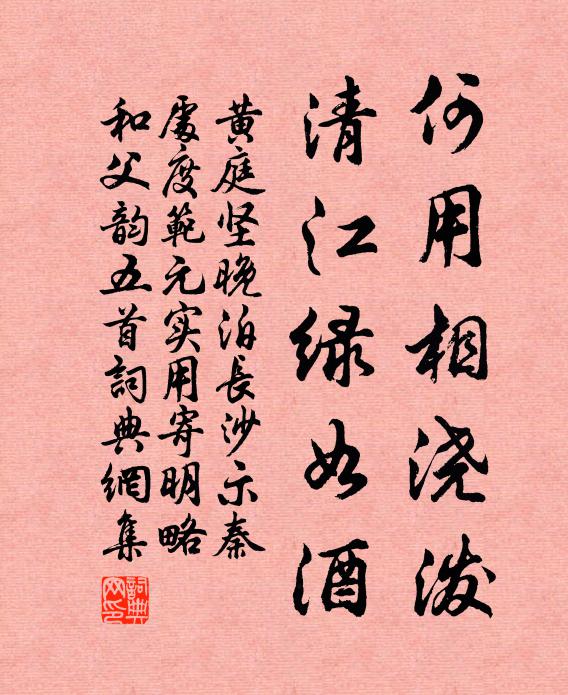 何用相浇泼
清江绿如酒
黄庭坚晚泊長沙示秦
處度範元实用寄明略
和父韵五首詞典網集
詞典网印